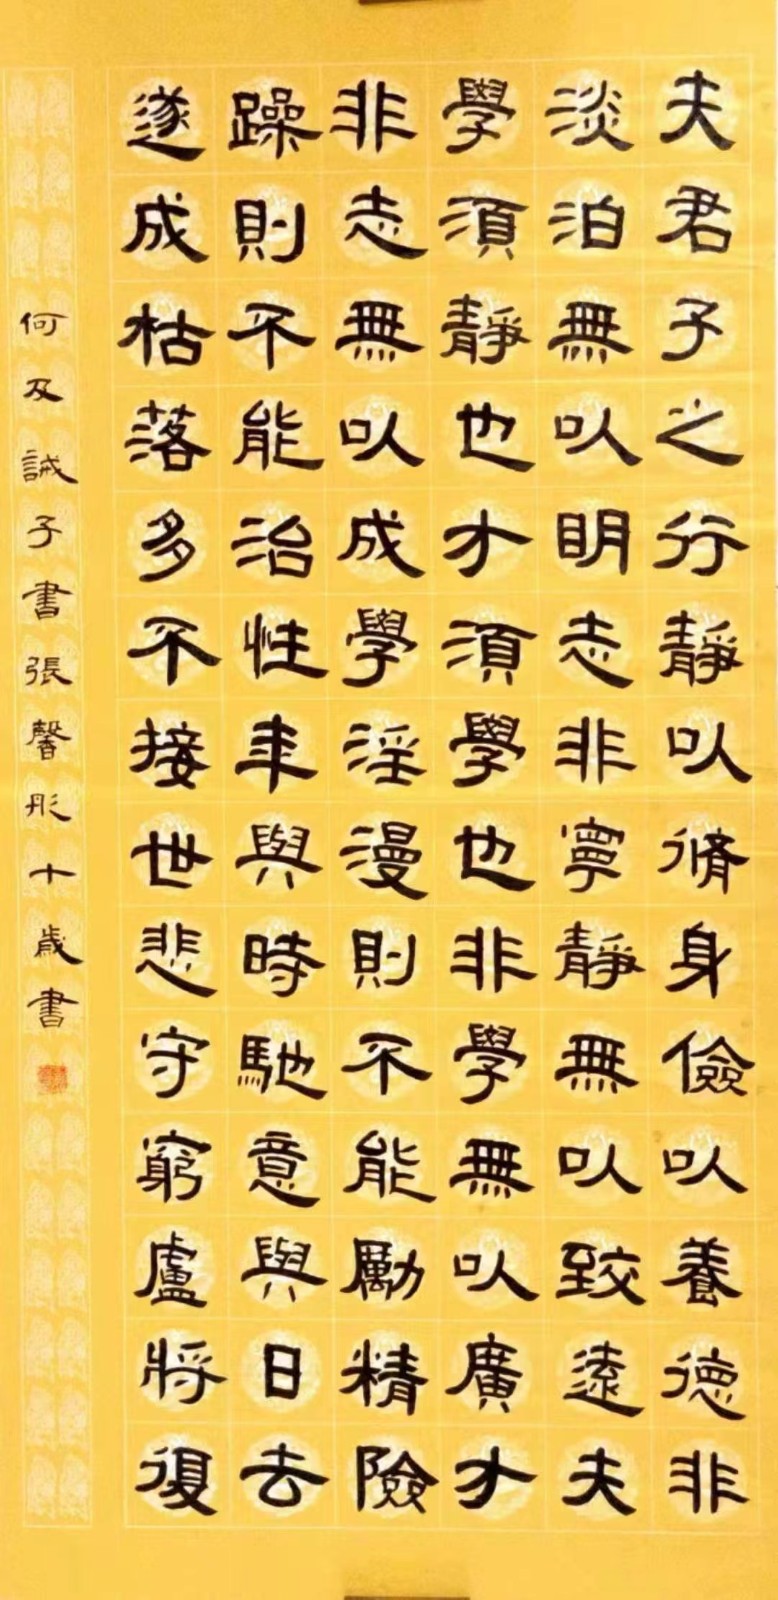 夫君子之行靜以脩身儉以養德非
淡泊無以明志非寧靜無以致遠夫
學須靜也才須學也非學無以廣才
非志無以成學淫漫則不能勵精險
躁則不能治性年與時馳意與日去
遂成枯落多不接世悲守窮廬將復
何及誡子書張馨彤十歲書